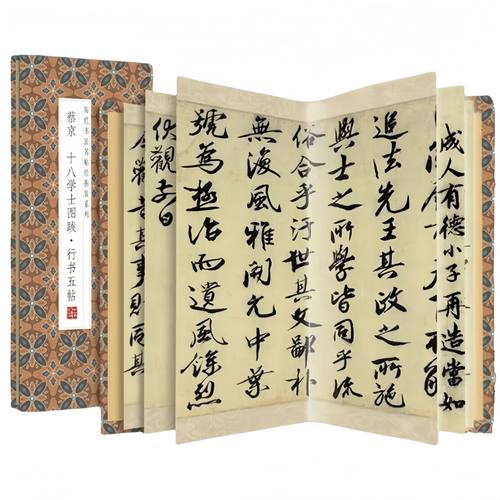 历代书法名帖经折装系列
蔡京 十八学士图跋·行书五帖
成人有德小子再造當如
追法先王其政之所施
與士之所學皆同乎流
俗合乎汙世其文鄙朴
無復風雅開元中葉
號為極治而遺風餘烈
伏觀
其事則同